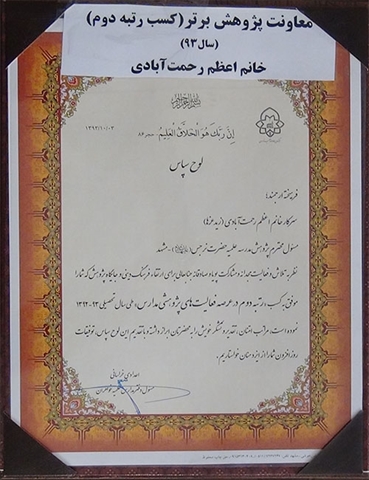 معاونت پژوهش برتر (کسب رتبه دوم)
(سال ۹۳)
خانم اعظم رحمت‌آبادی
إنَّ رَبَّكَ هُوَ الْخَلاّقُ الْعَلِيمُ حجر ۸۶
لوح سپاس
فرهیخته ارجمند؛
سرکار خانم اعظم رحمت آبادی (زید عزها)
مسئول محترم پژوهش مدرسه علمیه حضرت نرجس مشهد
نظر به تلاش و فعالیت مجدانه و مشارکت پویا و صادقانه جنابعالی برای ارتقاء فرهنگ دینی و جایگاه پژوهش که شما را
موفق به کسب رتبه دوم در عرصه فعالیت‌های پژوهشی مدارس، طی سال تحصیلی ۹۳-۱۳۹۲
نموده است، مراتب امتنان، تقدیر و تشکر خویش را به محضرتان ابراز داشته و با تقدیم این لوح سپاس، توفیقات
روزافزون شما را از ایزد منان خواستاریم.